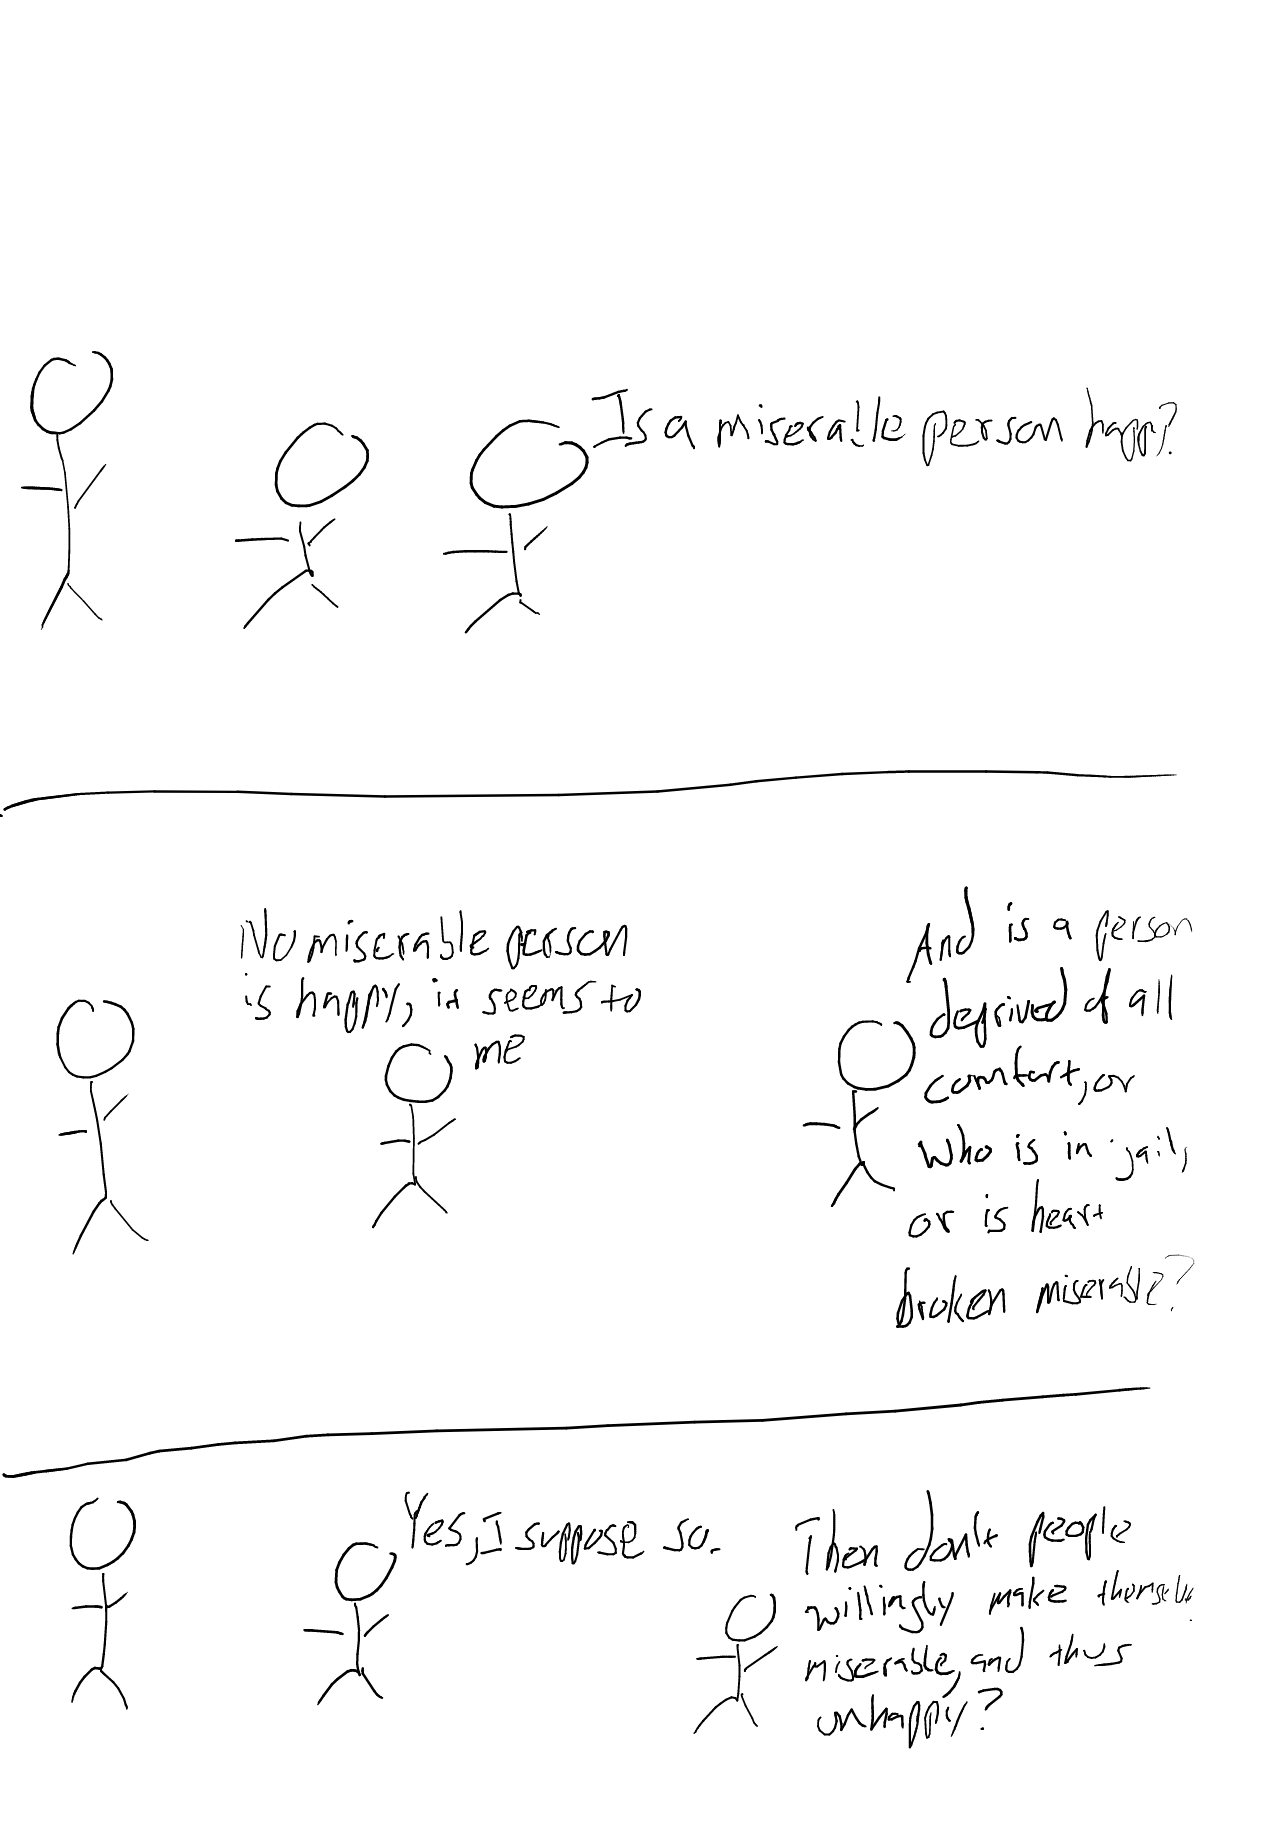 Is a miserable person happy?
No miserable person
is happy, it seems to
me
And is a person
deprived of all
comfort, or
who is in jail,
or is heart
broken miserable?
Yes, I suppose so.
Then don't people
willingly make themselves
miserable, and thus
unhappy?